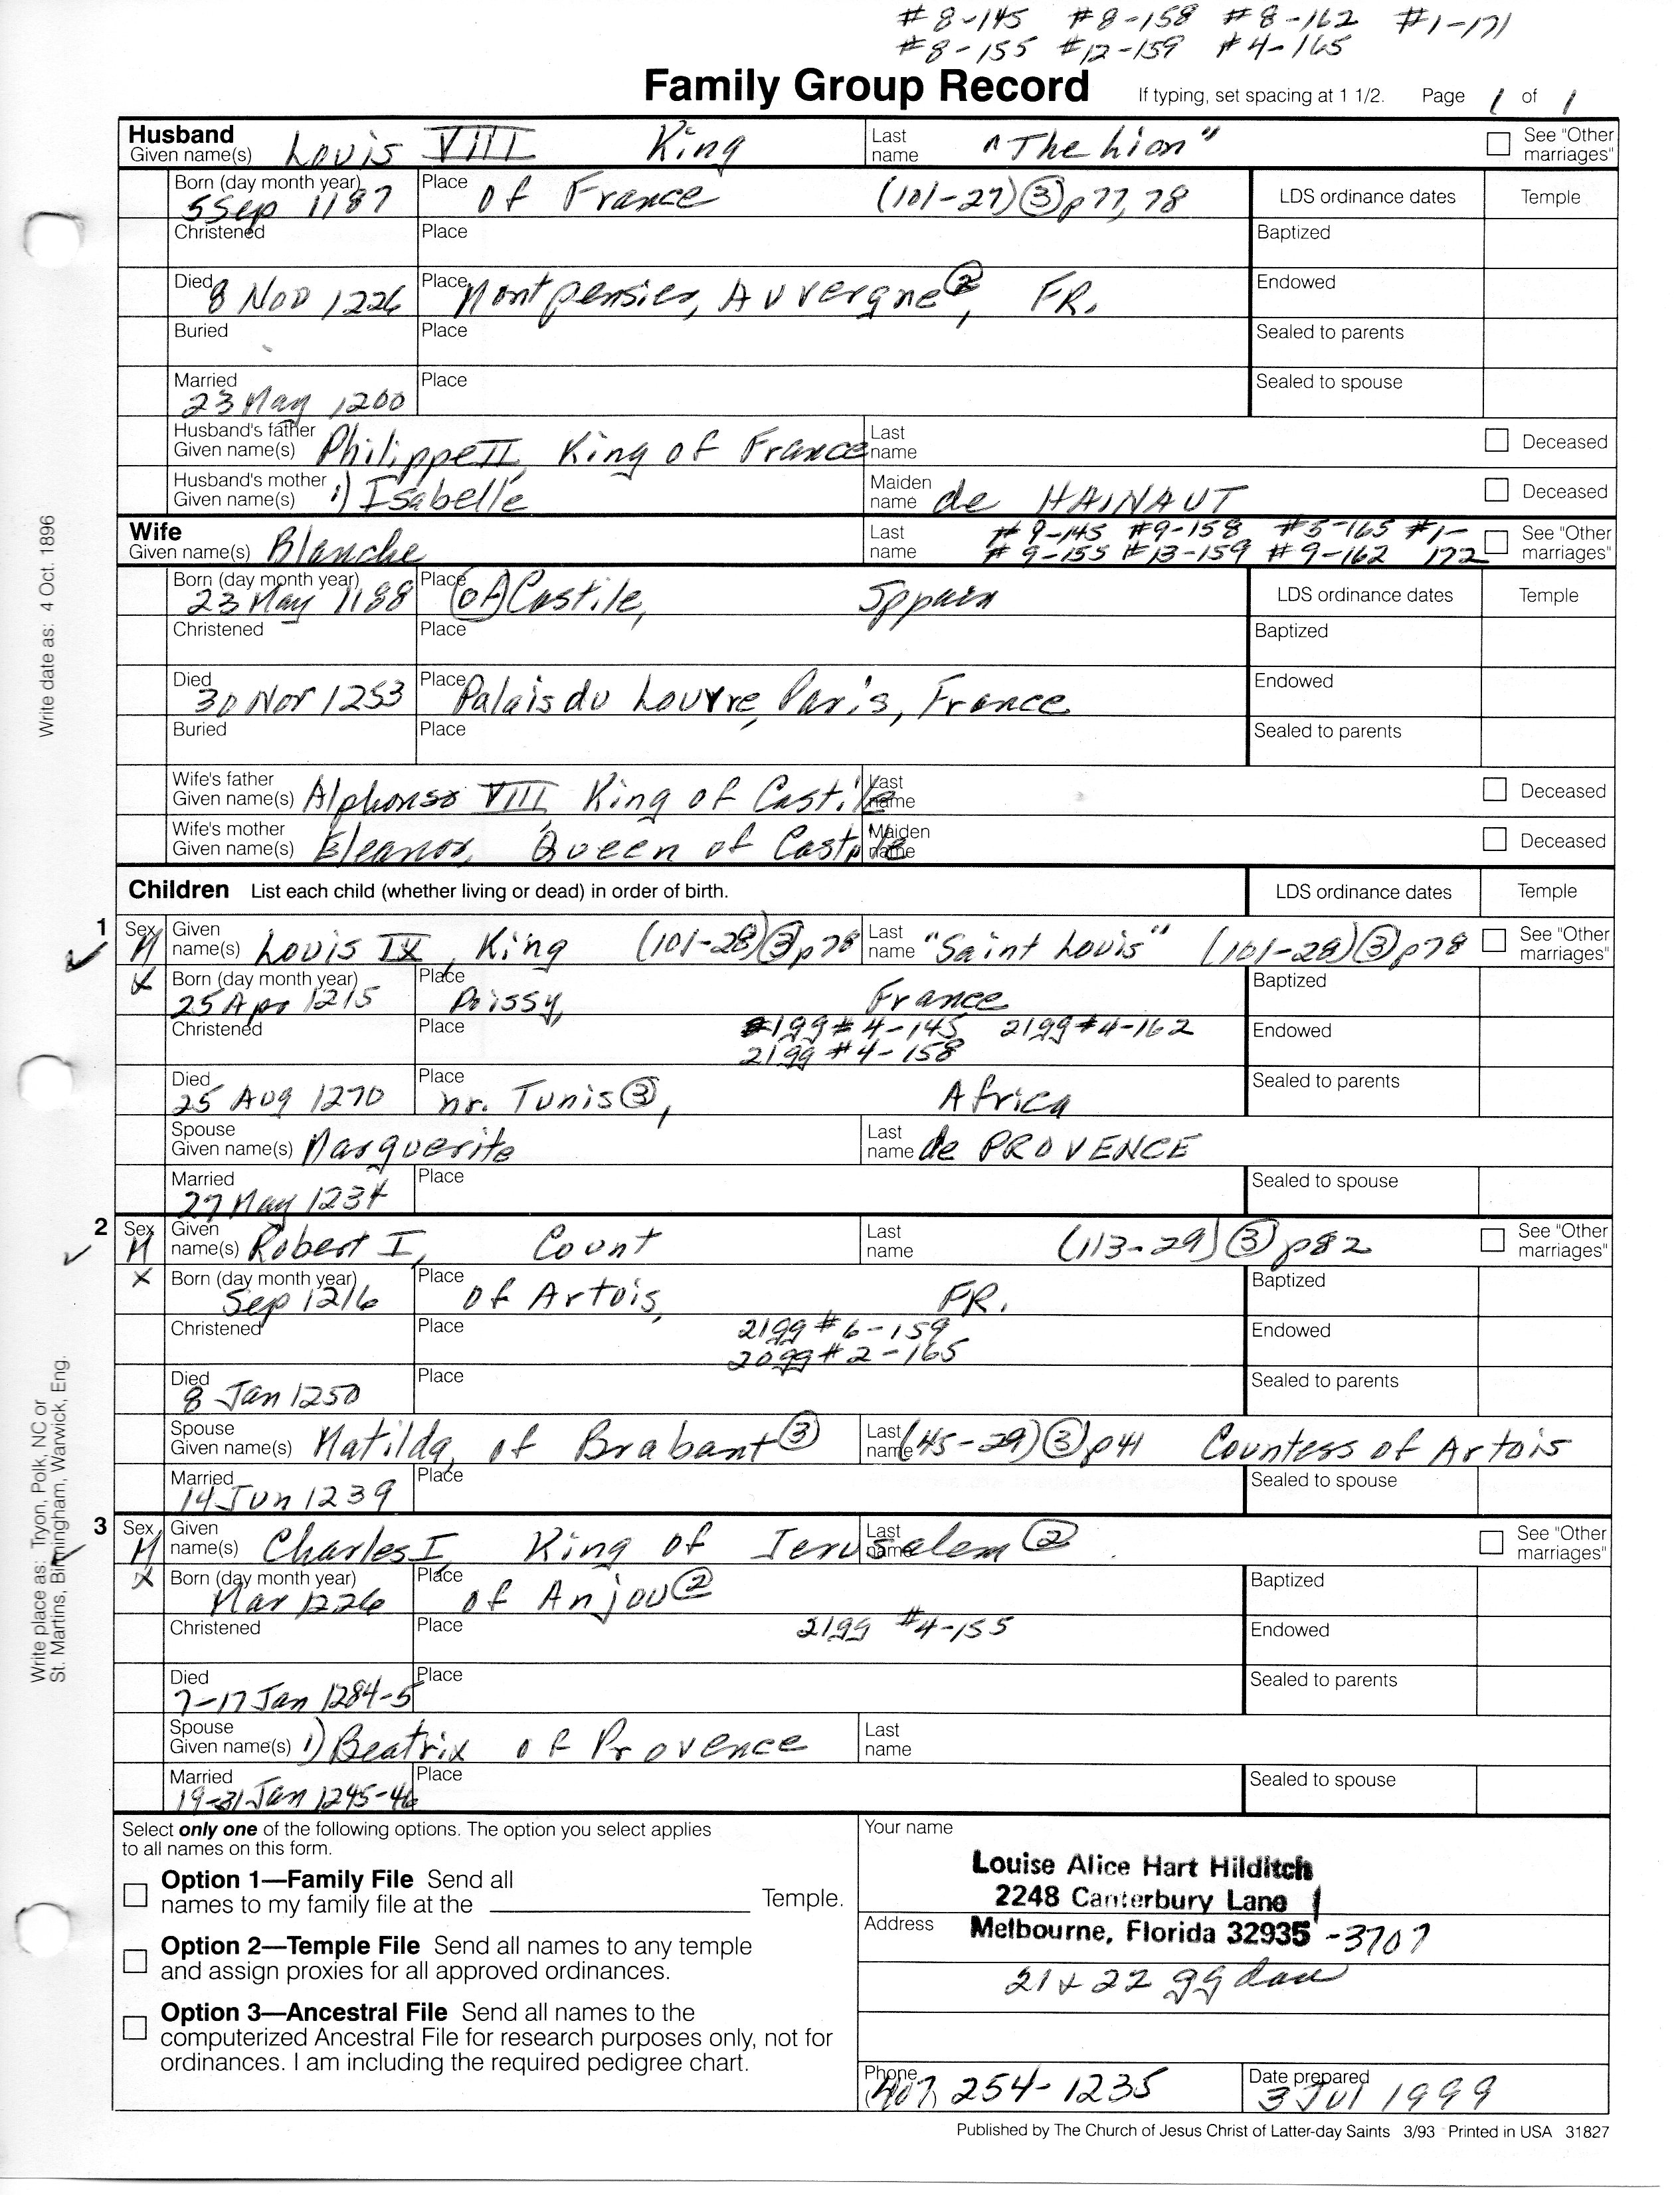 #8-145 #8-158 #8-162 #1-171
#8-155 #12-159 #4-165
Family Group Record If typing, set spacing at 1 1/2. Page 1 of 1
Husband
Given name(s) Louis VIII King Last name "The Lion" See "Other marriages"
Born (day month year) 5 Sep 1187 Place of France (101-27) ③ p77, 78 LDS ordinance dates Temple
Christened Place Baptized
Died 8 Nov 1226 Place Montpensier, Auvergne ②, FR. Endowed
Buried Place Sealed to parents
Married 23 May 1200 Place Sealed to spouse
Husband's father Given name(s) Philippe II, King of France Last name Deceased
Husband's mother Given name(s) 1) Isabelle Maiden name de HAINAUT Deceased
Wife
Given name(s) Blanche Last name #9-145 #9-158 #5-165 #1-
#9-155 #13-159 #9-162 172 See "Other marriages"
Born (day month year) 23 May 1188 Place (of) Castile, Sppain LDS ordinance dates Temple
Christened Place Baptized
Died 30 Nov 1253 Place Palais du Louvre, Paris, France Endowed
Buried Place Sealed to parents
Wife's father Given name(s) Alphonso VIII, King of Castile Last name Deceased
Wife's mother Given name(s) Eleanor, Queen of Castile Maiden name Deceased
Children List each child (whether living or dead) in order of birth. LDS ordinance dates Temple
1 Sex M Given name(s) Louis IX, King (101-28) ③ p78 Last name "Saint Louis" (101-28) ③ p78 See "Other marriages"
X Born (day month year) 25 Apr 1215 Place Poissy, France Baptized
Christened Place 21gg #4-145 21gg #4-162 Endowed
21gg #4-158
Died 25 Aug 1270 Place nr. Tunis ③, Africa Sealed to parents
Spouse Given name(s) Marguerite Last name de PROVENCE
Married 27 May 1234 Place Sealed to spouse
2 Sex M Given name(s) Robert I, Count Last name (113-29) ③ p82 See "Other marriages"
X Born (day month year) Sep 1216 Place of Artois, FR. Baptized
Christened Place 21gg #6-159 Endowed
20gg #2-165
Died 8 Jan 1250 Place Sealed to parents
Spouse Given name(s) Matilda, of Brabant ③ Last name (45-29) ③ p41 Countess of Artois
Married 14 Jun 1239 Place Sealed to spouse
3 Sex M Given name(s) Charles I, King of Jerusalem ② Last name See "Other marriages"
X Born (day month year) Mar 1226 Place of Anjou ② Baptized
Christened Place 21gg #4-155 Endowed
Died 7-17 Jan 1284-5 Place Sealed to parents
Spouse Given name(s) 1) Beatrix of Provence Last name
Married 19-31 Jan 1245-46 Place Sealed to spouse
Select only one of the following options. The option you select applies
to all names on this form.
Option 1—Family File Send all
names to my family file at the Temple.
Option 2—Temple File Send all names to any temple
and assign proxies for all approved ordinances.
Option 3—Ancestral File Send all names to the
computerized Ancestral File for research purposes only, not for
ordinances. I am including the required pedigree chart.
Your name
Louise Alice Hart Hilditch
2248 Canterbury Lane
Address Melbourne, Florida 32935 -3707
21 & 22 gg dau
Phone (407) 254-1235 Date prepared 3 Jul 1999
Published by The Church of Jesus Christ of Latter-day Saints 3/93 Printed in USA 31827
Write date as: 4 Oct. 1896
Write place as: Tryon, Polk, NC or
St. Martins, Birmingham, Warwick, Eng.